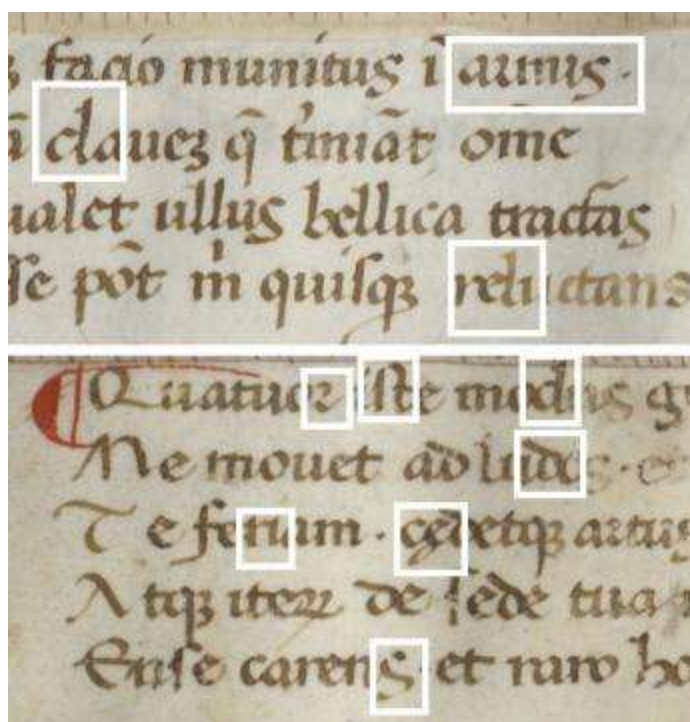 ꝫ facio munitus ī armis ·
ā claueꝫ q̄ t'miāt om̄e
ualet ullus bellica tractās
ſſe pōt m' quiſqꝫ reluctans
¶ Quatuor iſte modus g
Me mouet ad ludes · e
Te feriam · cedetqꝫ artus
Atqꝫ iteꝝ de ſede tua
Enſe carens · et raro ho